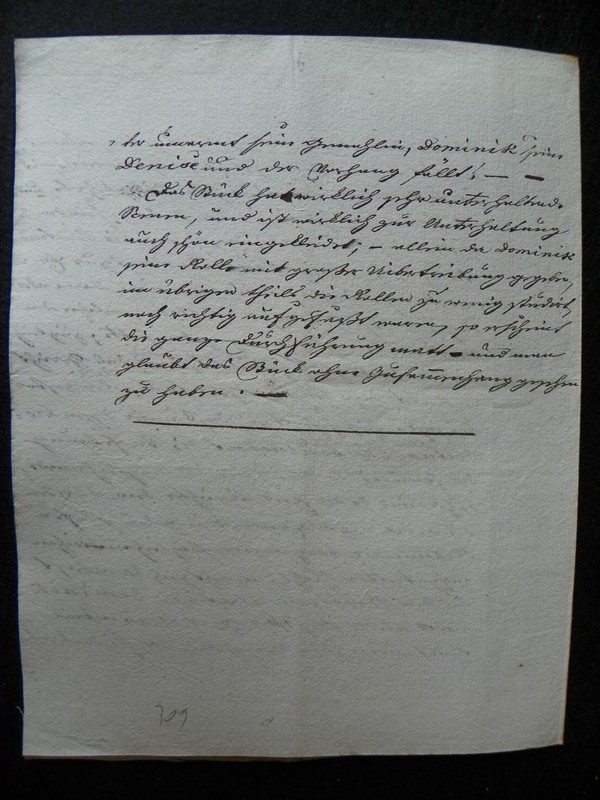 ter umarmt seine Gemahlin, Dominik seine
Denise und der Vorhang fällt! — —
Das Stück hat wirklich sehr unterhaltende
Scenen, und ist wirklich zur Unterhaltung
auch schön eingekleidet; – allein da Dominik
seine Rolle mit großer Uibertreibung gegeben,
im übrigen theils die Rollen zu wenig studirt,
noch richtig aufgefaßt waren, so erscheint
die ganze Durchführung matt – und man
glaubt das Stück ohne Zusammenhang gesehen
zu haben. —